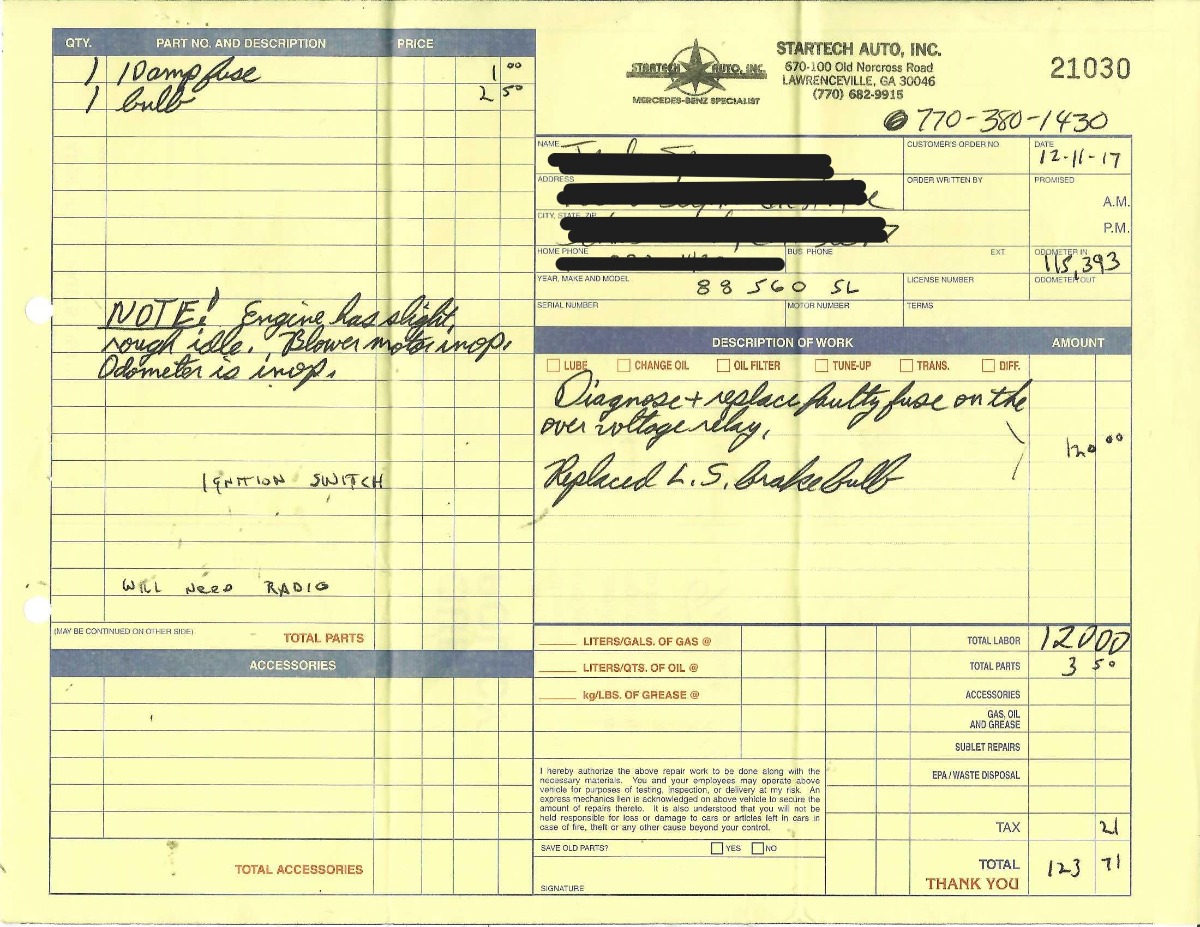 QTY. PART NO. AND DESCRIPTION PRICE
1 10amp fuse 1 00
1 bulb 2 50
NOTE! Engine has slight,
rough idle. Blower motor inop.
Odometer is inop.
IGNITION SWITCH
WILL NEED RADIO
(MAY BE CONTINUED ON OTHER SIDE) TOTAL PARTS
ACCESSORIES
TOTAL ACCESSORIES
STARTECH AUTO, INC.
MERCEDES-BENZ SPECIALIST
STARTECH AUTO, INC.
670-100 Old Norcross Road
LAWRENCEVILLE, GA 30046
(770) 682-9915
21030
770-380-1430
NAME CUSTOMER'S ORDER NO. DATE
12-11-17
ADDRESS ORDER WRITTEN BY PROMISED
A.M.
CITY, STATE, ZIP
P.M.
HOME PHONE BUS. PHONE EXT. ODOMETER IN
115,393
YEAR, MAKE AND MODEL LICENSE NUMBER ODOMETER OUT
88 560 SL
SERIAL NUMBER MOTOR NUMBER TERMS
DESCRIPTION OF WORK AMOUNT
LUBE CHANGE OIL OIL FILTER TUNE-UP TRANS. DIFF.
Diagnose + replace faulty fuse on the
over voltage relay,
120 00
Replaced L. S. brake bulb
LITERS/GALS. OF GAS @ TOTAL LABOR 120 00
LITERS/QTS. OF OIL @ TOTAL PARTS 3 50
kg/LBS. OF GREASE @ ACCESSORIES
GAS, OIL
AND GREASE
SUBLET REPAIRS
EPA / WASTE DISPOSAL
I hereby authorize the above repair work to be done along with the
necessary materials. You and your employees may operate above
vehicle for purposes of testing, inspection, or delivery at my risk. An
express mechanics lien is acknowledged on above vehicle to secure the
amount of repairs thereto. It is also understood that you will not be
held responsible for loss or damage to cars or articles left in cars in
case of fire, theft or any other cause beyond your control.
TAX 21
SAVE OLD PARTS? YES NO
TOTAL 123 71
THANK YOU
SIGNATURE